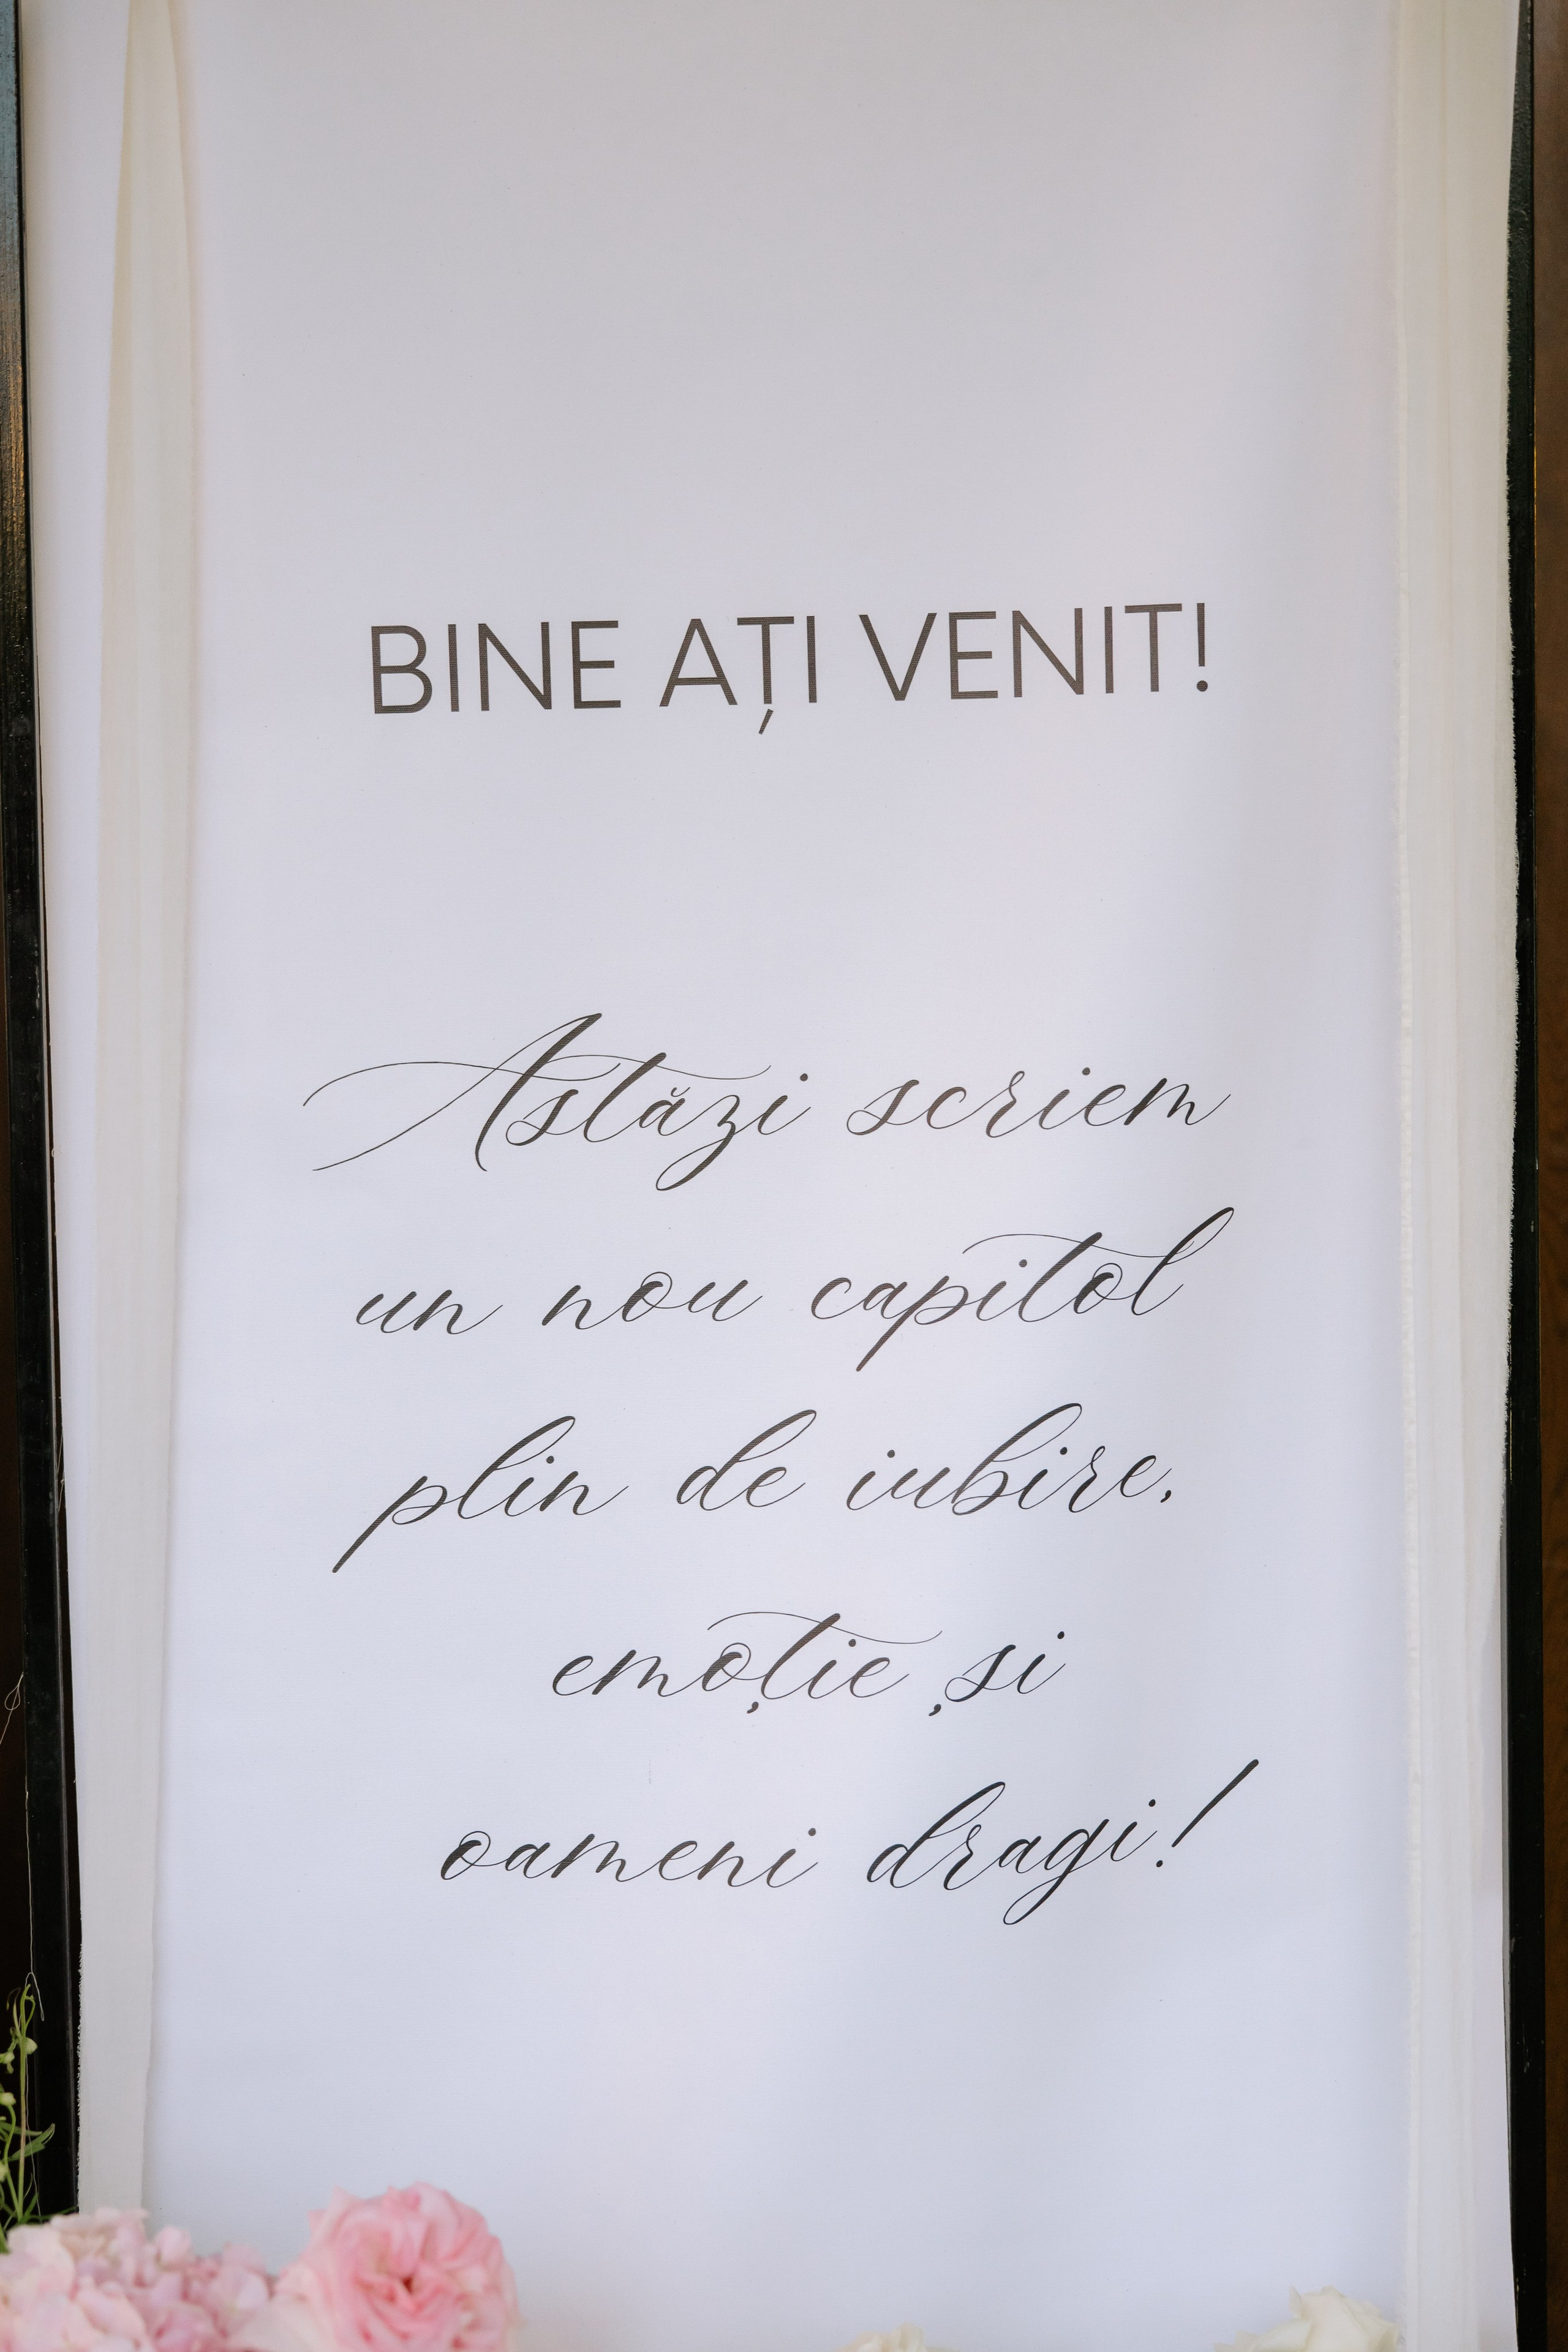 BINE AȚI VENIT!
Astăzi scriem
un nou capitol
plin de iubire,
emoție și
oameni dragi!